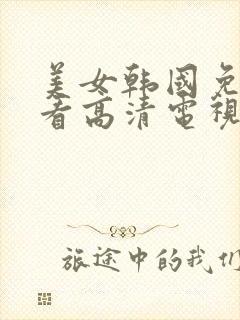 美女韩国免
看高清電視
旅途中的我们